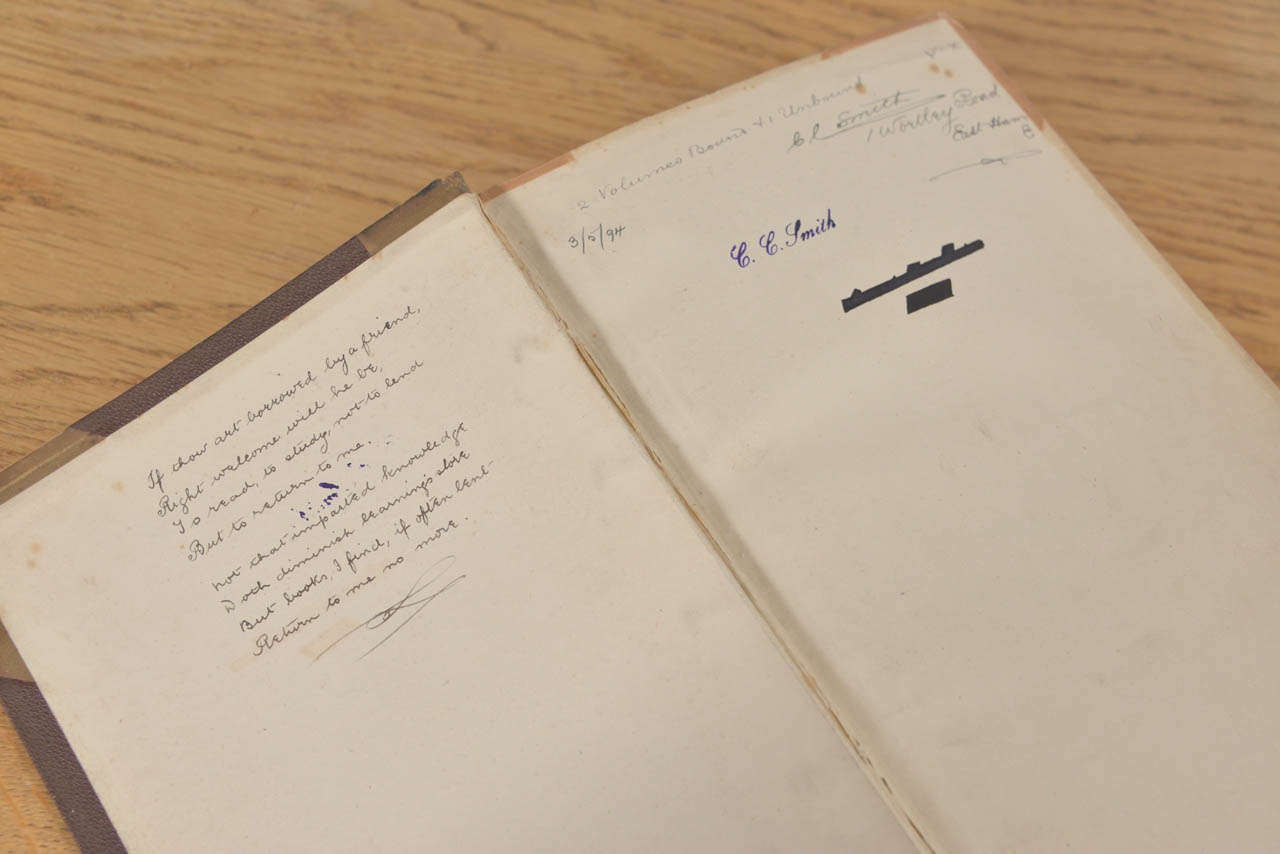 If thou art borrowed by a friend,
Right welcome will he be,
To read, to study, not to lend
But to return to me.
Not that imparted knowledge
Doth diminish learnings store
But books, I find, if often lent
Return to me no more.
2 Volumes Bound & 1 Unbound
Smith
1 Wortley Road
East Ham
E
3/5/94
C. C. Smith